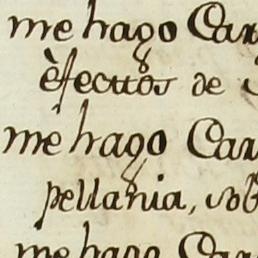 me hago Car
èfectos de
me hago Car
pellania, sob
me hago Car